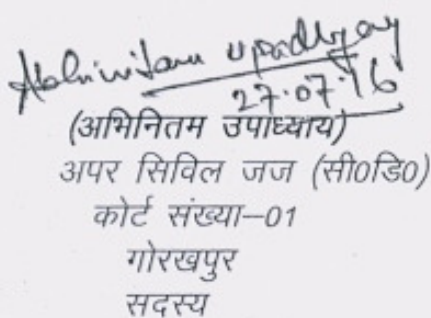 Abhinitam Upadhyay
27.07.16
(अभिनितम उपाध्याय)
अपर सिविल जज (सी0डि0)
कोर्ट संख्या–01
गोरखपुर
सदस्य